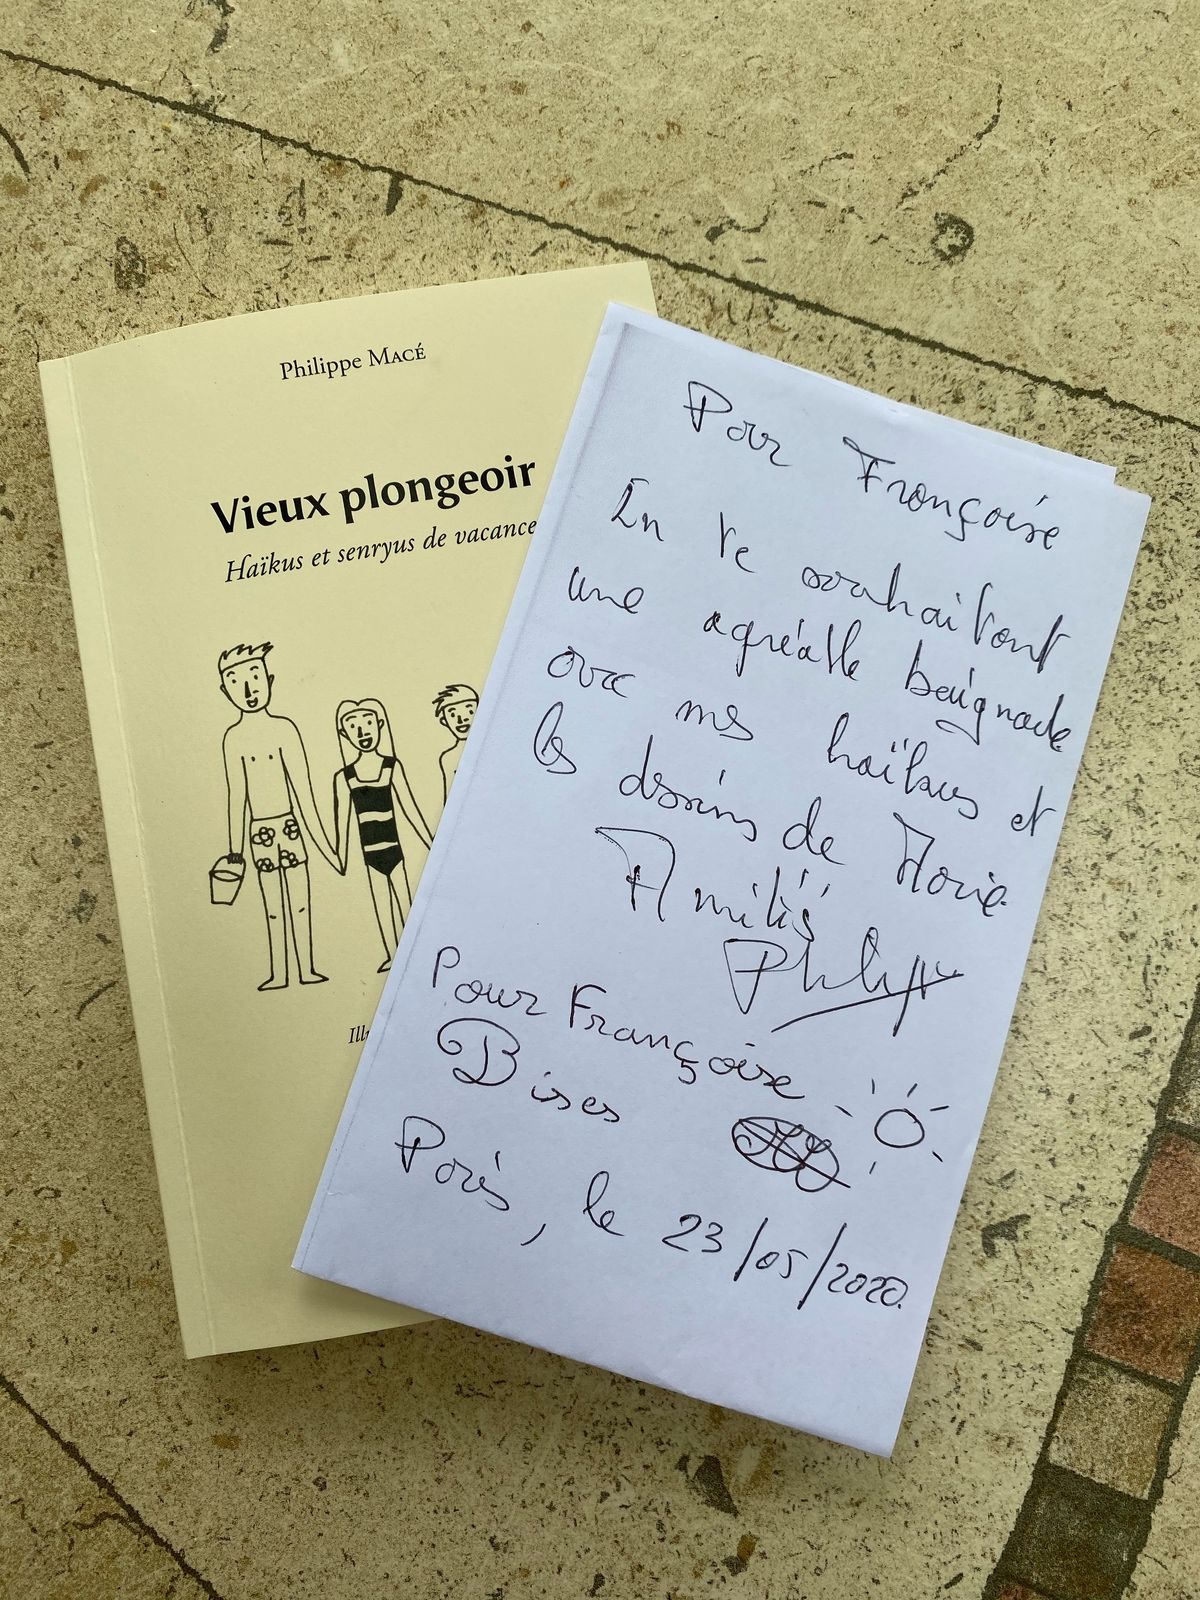 Philippe MACÉ
Vieux plongeoir
Haïkus et senryus de vacance
Ill
Pour Françoise
En te souhaitant
une agréable baignade
avec mes haïkus et
les dessins de Marie
Amitiés
Philippe
Pour Françoise
Bises
Paris, le 23/05/2020.